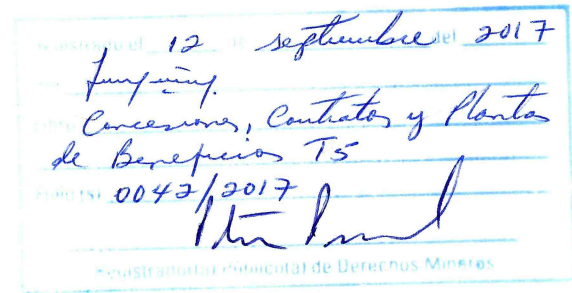 Registrado el 12 de septiembre del 2017
Concesiones, Contratos y Plantas
de Beneficios T5
Folio (s) 0042/2017
Registrador(a) Público(a) de Derechos Mineros